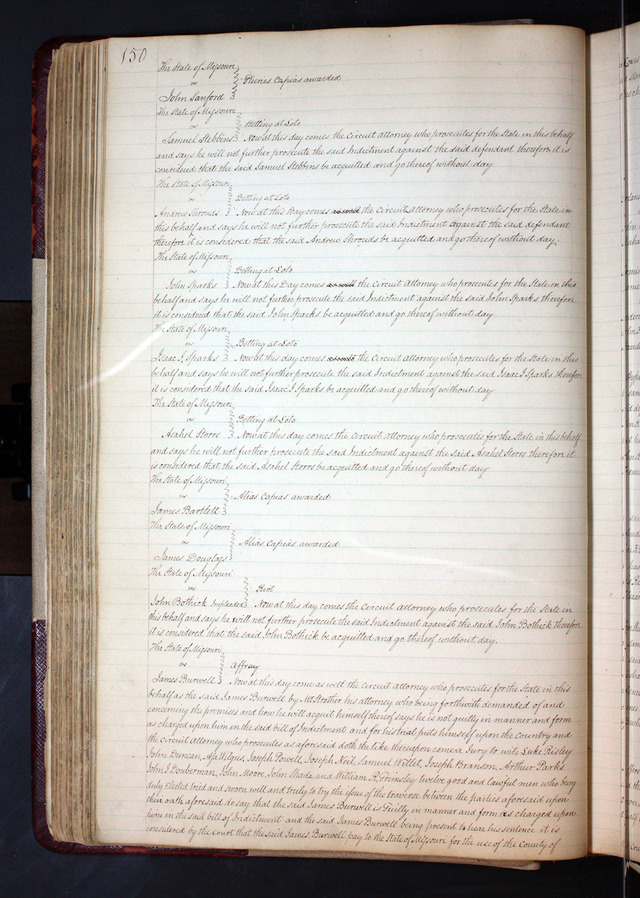 150
The State of Missouri
vs
Pluries Capias awarded
John Sanford
The State of Missouri
vs
Betting at Loto
Samuel Stebbins Now at this day comes the Circuit attorney who prosecutes for the State in this behalf
and says he will not further prosecute the said Indictment against the said defendant therefore it is
considered that the said Samuel Stebbins be acquitted and go thereof without day
The State of Missouri
vs
Betting at Loto
Andrew Shrouds Now at this Day comes as well the Circuit Attorney who prosecutes for the State in
this behalf and says he will not further prosecute the said Indictment against the said defendant
therefore it is considered that the said Andrew Shrouds be acquitted and go thereof without day.
The State of Missouri
vs
Betting at Loto
John Sparks Now at this Day comes as well the Circuit Attorney who prosecutes for the State in this
behalf and says he will not further prosecute the said Indictment against the said John Sparks therefore
it is considered that the said John Sparks be acquitted and go thereof without day
The State of Missouri
vs
Betting at Loto
Isaac J Sparks Now at this day comes as well the Circuit Attorney who prosecutes for the State in this
behalf and says he will not further prosecute the said Indictment against the said Isaac J Sparks therefore
it is considered that the said Isaac J Sparks be acquitted and go thereof without day
The State of Missouri
vs
Betting at Loto
Asahel Storrs Now at this day comes the Circuit attorney who prosecutes for the State in this behalf
and says he will not further prosecute the said Indictment against the said Asahel Storrs therefore it
is considered that the said Asahel Storrs be acquitted and go thereof without day
The State of Missouri
vs
Alias Capias awarded
James Bartlett
The State of Missouri
vs
Alias Capias awarded
James Douglass
The State of Missouri
vs
Riot
John Bothick Impleaded Now at this day comes the Circuit Attorney who prosecutes for the State in
this behalf and says he will not further prosecute the said Indictment against the said John Bothick therefore
it is considered that the said John Bothick be acquitted and go thereof without day.
The State of Missouri
vs
Affray
James Burwell Now at this day come as well the Circuit Attorney who prosecutes for the State in this
behalf as the said James Burwell by McStrother his attorney who being forthwith demanded of and
concerning the premises and how he will acquit himself thereof says he is not guilty in manner and form
as charged upon him in the said bill of Indictment and for his trial puts himself upon the Country and
the Circuit Attorney who prosecutes as aforesaid doth the like thereupon come a Jury to wit Luke Risley
John Duncan, Milque, Joseph Powell, Joseph Neil, Samuel Willet, Joseph Branson, Arthur Parks
John J Douberman, John Moore, John Shade and William R Grimsley twelve good and lawful men who being
duly elected tried and sworn well and truly to try the issue of the traverse between the parties aforesaid upon
their oath aforesaid do say that the said James Burwell is Guilty in manner and form as charged upon
him in the said bill of Indictment and the said James Burwell being present to hear his sentence it is
considered by the Court that the said James Burwell pay to the State of Missouri for the use of the County of